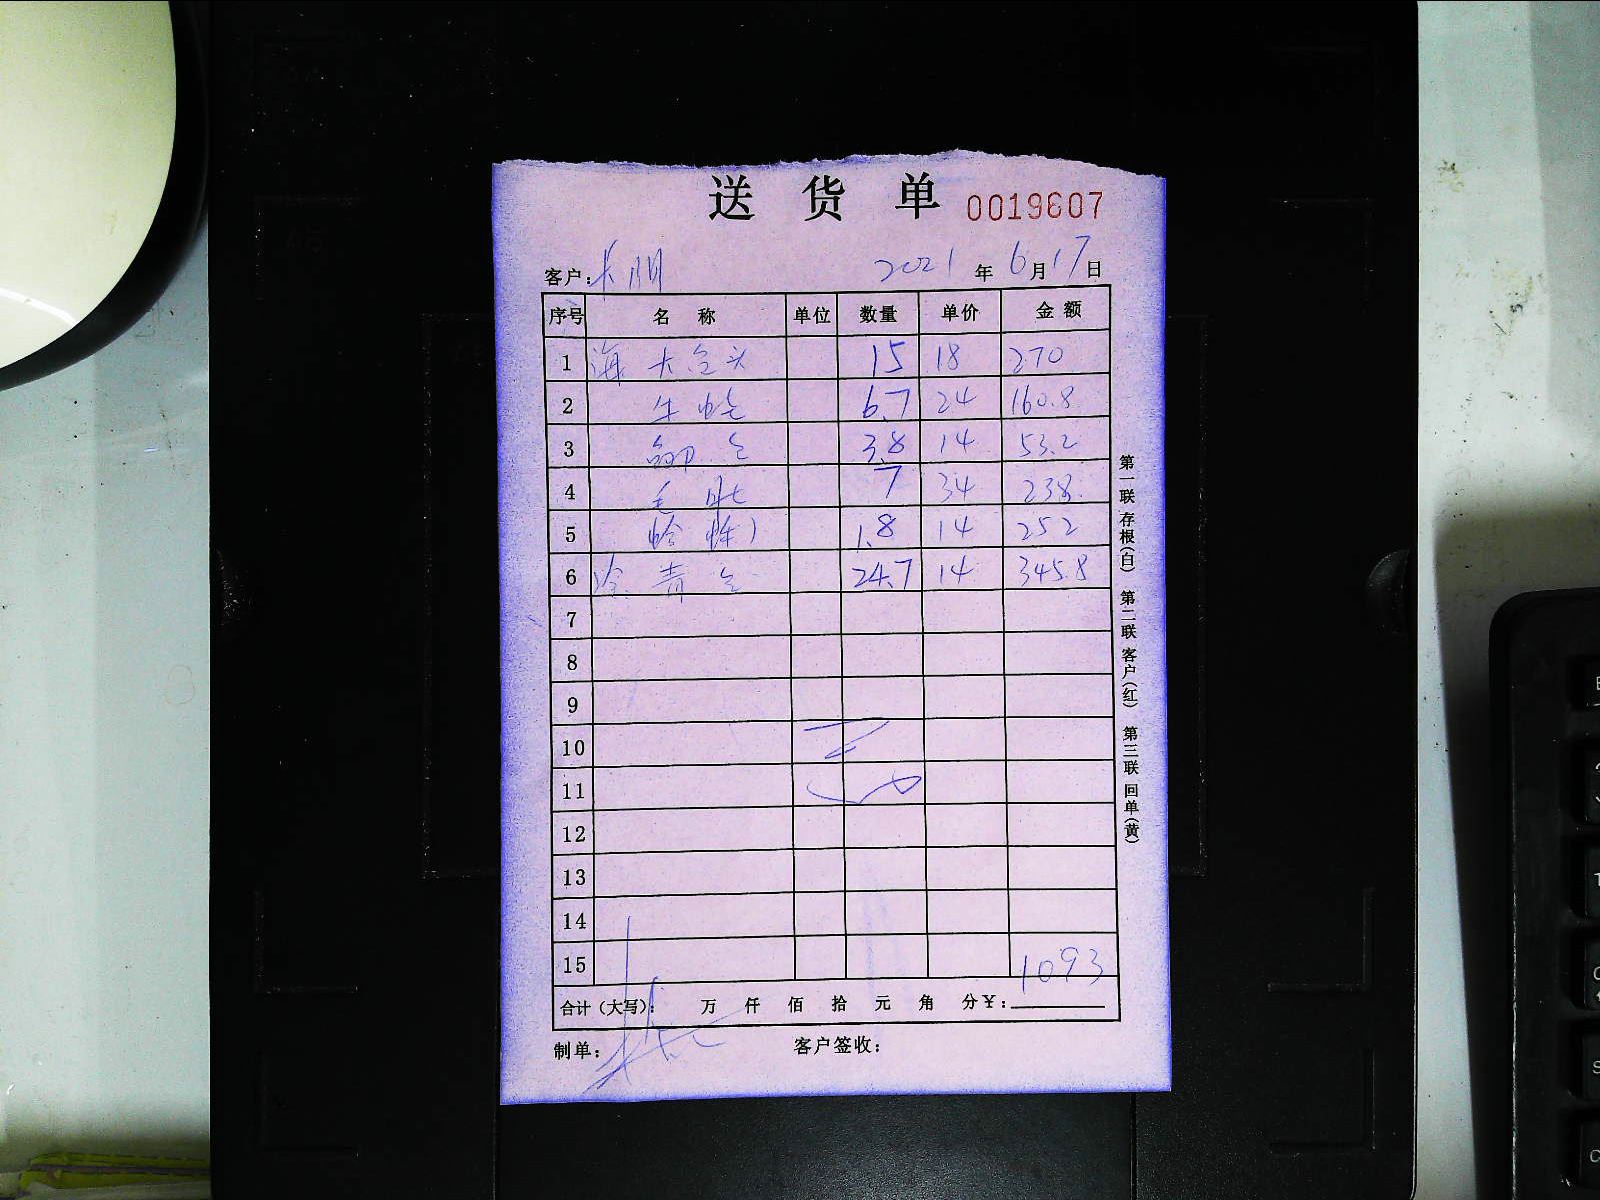 送 货 单 0019607
客户: 2021 年 6 月 17 日
序号 名 称 单位 数量 单价 金 额
1 海 大 头 15 18 270
2 牛 6.7 24 160.8
3 3.8 14 53.2
4 毛 7 34 238
5 1.8 14 252
6 冷 青 24.7 14 345.8
7
8
9
10
11
12
13
14
15 1093
合计(大写): 万 仟 佰 拾 元 角 分¥:
制单: 客户签收:
第一联 存根(白) 第二联 客户(红) 第三联 回单(黄)